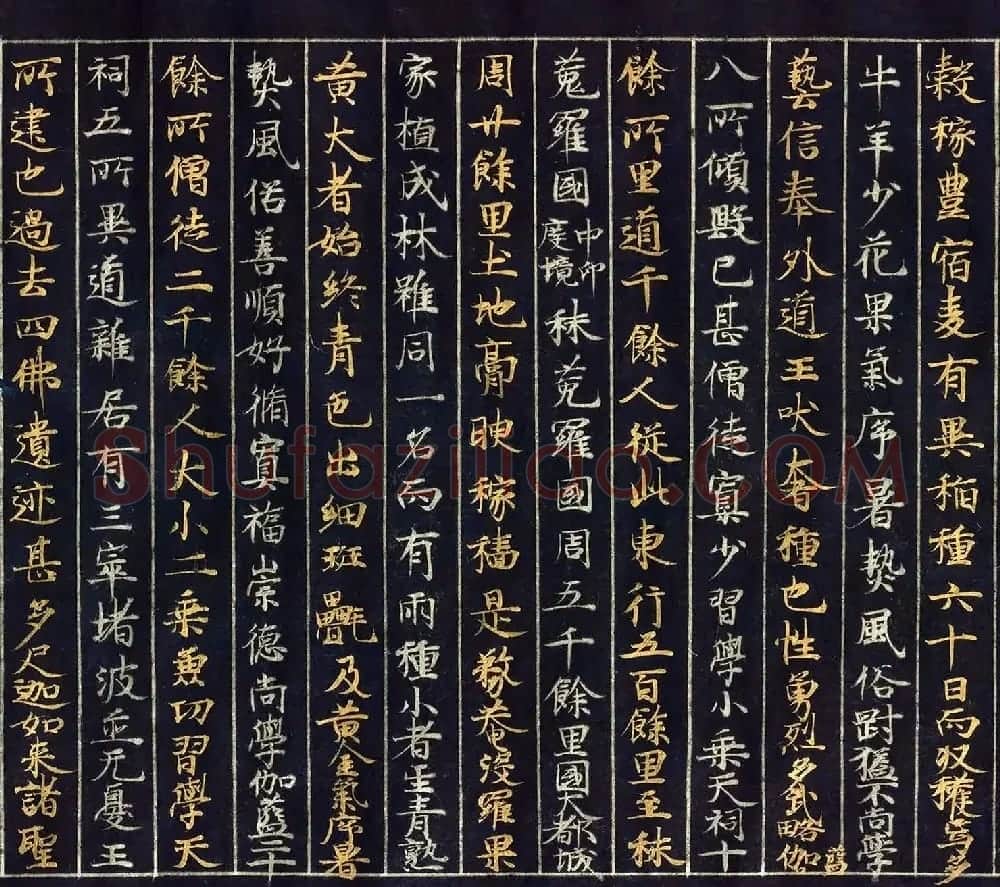 穀稼豊宿麦有異稻種六十日而収穫焉多
牛羊少花果氣序暑熱風俗尉猛不尚學
藝信奉外道王吠奢種也性勇烈多武略伽藍
八所傾毀已甚僧徒寡少習學小乗天祠十
餘所里道千餘人従此東行五百餘里至秣
菟羅國中印度境秣菟羅國周五千餘里國大都城
周廿餘里土地膏腴稼穡是務菴没羅果
家植成林雖同一名而有兩種小者生青熟
黄大者始終青色出細班㲲及黄金氣序暑
熱風俗善順好循寘福崇德尚學伽藍二十
餘所僧徒二千餘人大小二乗兼切習學天
祠五所異道雜居有三窣堵波並无憂王
所建也過去四佛遺迹甚多尺迦如来諸聖
Shufaziliao.COM